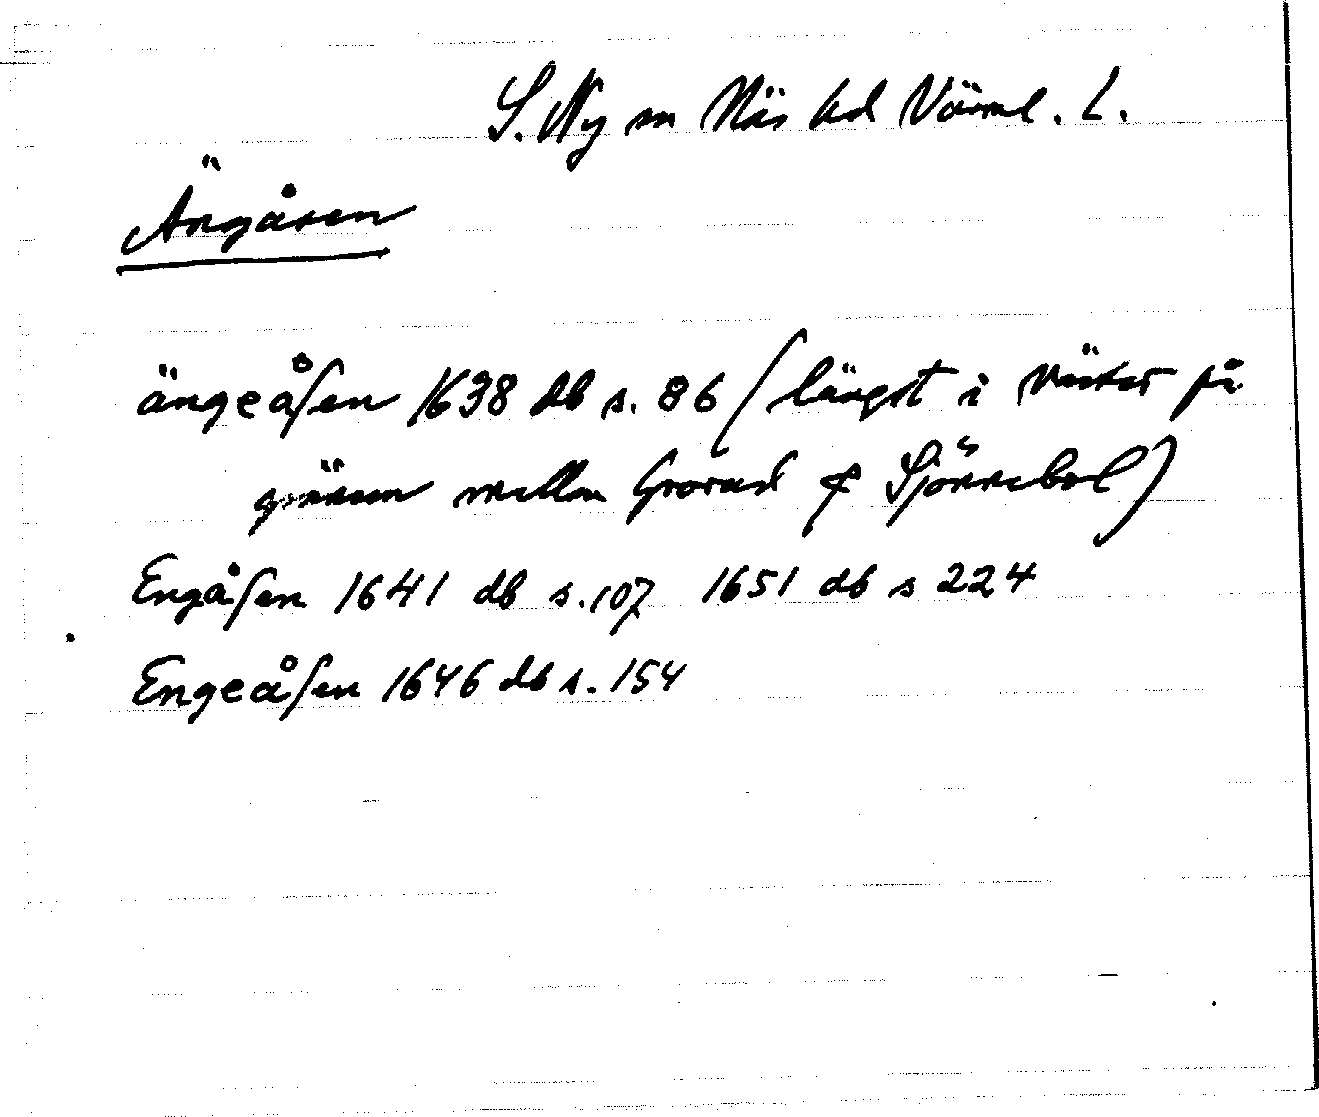 S. Ny sn Näs hd Värml. L.
Ängåsen
ängeåſen 1638 db s. 86 (längst i väster på
gränsen mellan Grorud & Sjönnebol)
Engåſen 1641 db s. 107 1651 db s 224
Engeåſen 1646 db s. 154